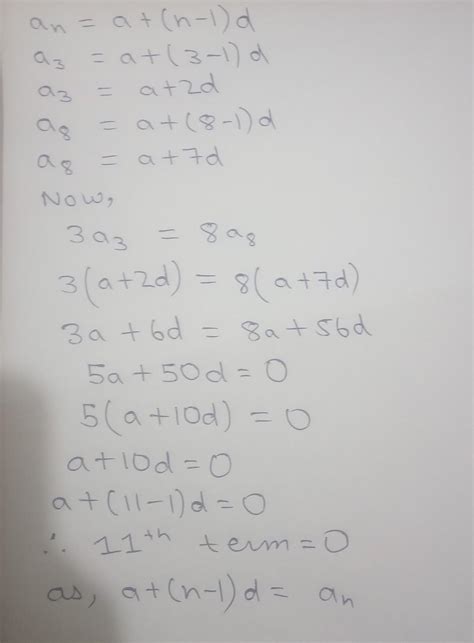 aₙ = a+(n-1)d
a₃ = a+(3-1)d
a₃ = a+2d
a₈ = a+(8-1)d
a₈ = a+7d
Now,
3a₃ = 8a₈
3(a+2d) = 8(a+7d)
3a+6d = 8a+56d
5a+50d=0
5(a+10d) = 0
a+10d=0
a+(11-1)d=0
∴ 11ᵗʰ term=0
as, a+(n-1)d = aₙ